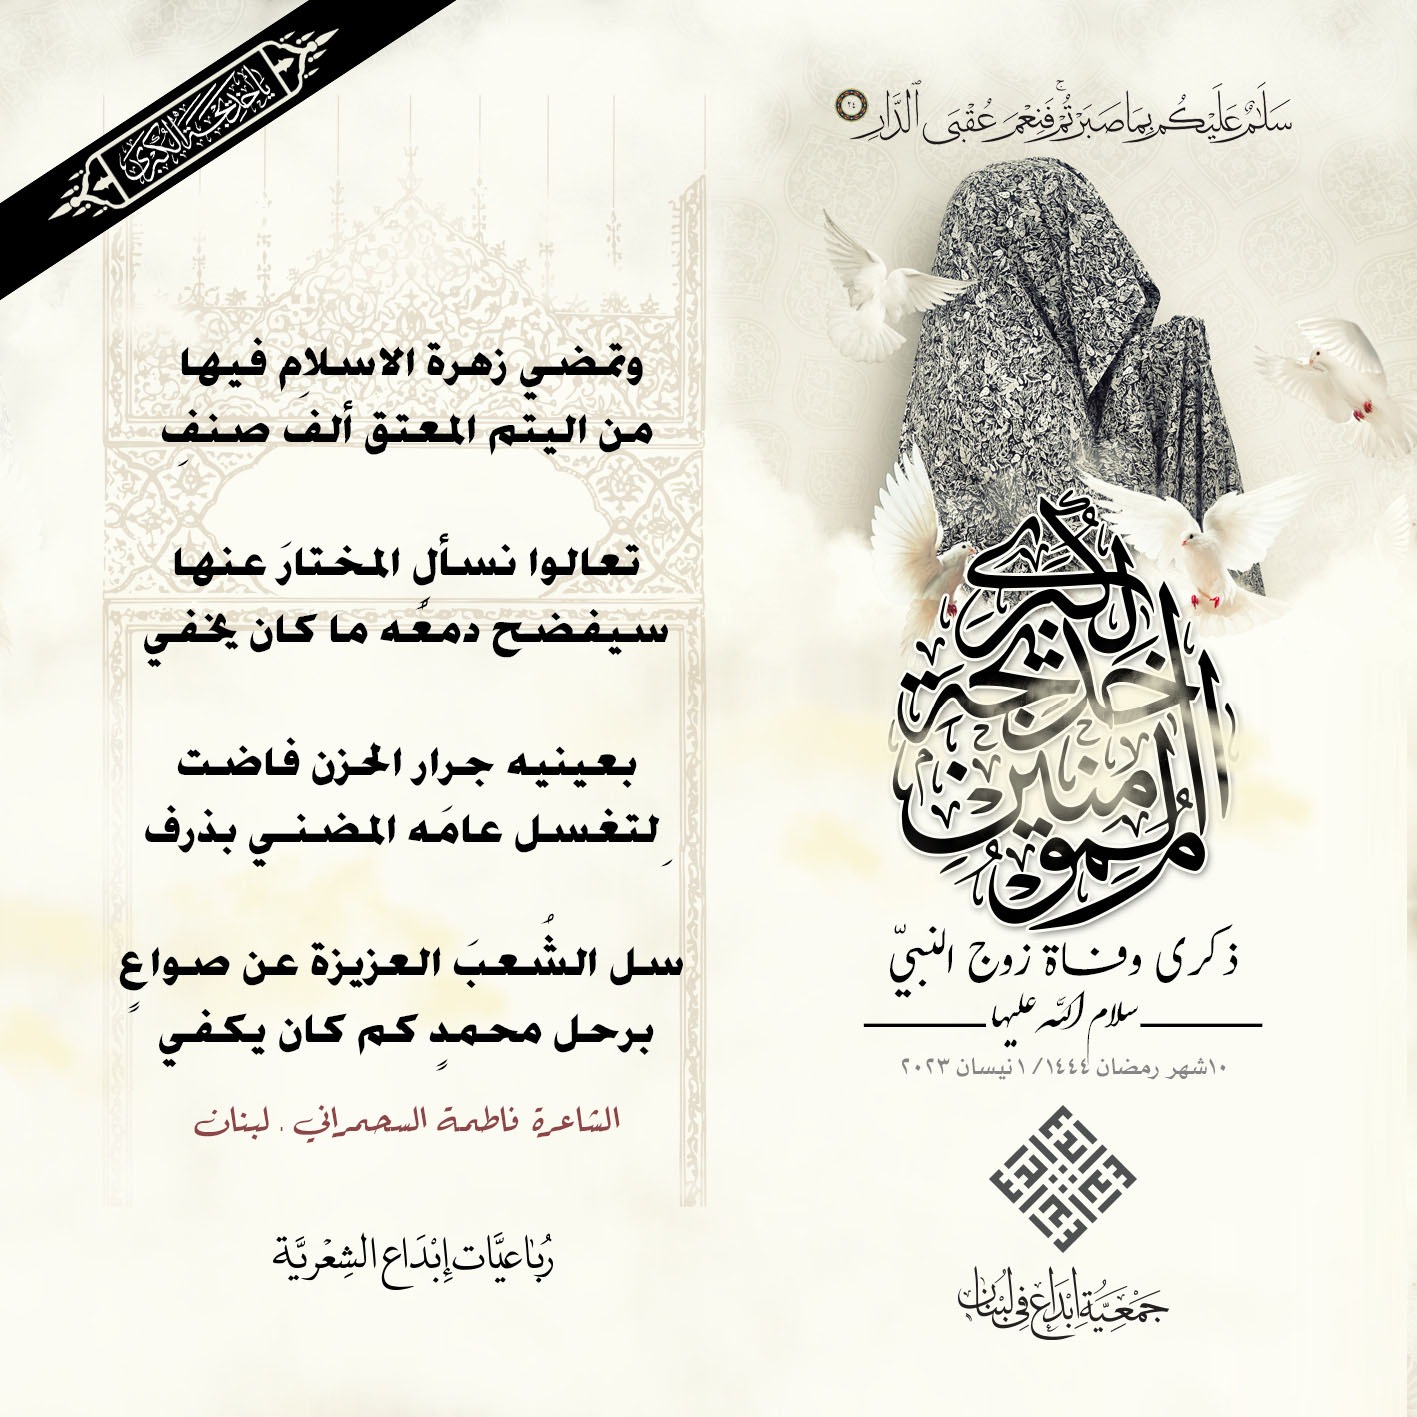 سَلَٰمٌ عَلَيْكُم بِمَا صَبَرْتُمْ ۚ فَنِعْمَ عُقْبَى ٱلدَّارِ ٢٤
يا خديجة الكبرى
وتمضي زهرة الاسلامِ فيها
من اليتم المعتق ألف صنفِ
تعالوا نسألِ المختارَ عنها
سيفضح دمعُه ما كان يخفي
بعينيه جرار الحزن فاضت
لِتغسل عامَه المضني بذرف
سل الشُعبَ العزيزة عن صواعٍ
برحل محمدٍ كم كان يكفي
الشاعرة فاطمة السحمراني . لبنان
رُبَاعيَّات إِبْدَاع الشِعْريَّة
ام المؤمنين خديجة الكبرى
ذكرى وفاة زوج النبيّ
سلام الله عليها
١٠شهر رمضان ١٤٤٤/ ١نيسان ٢٠٢٣
إبداع
جَمْعِيَّةُ إِبْدَاع فِي لُبْنَان